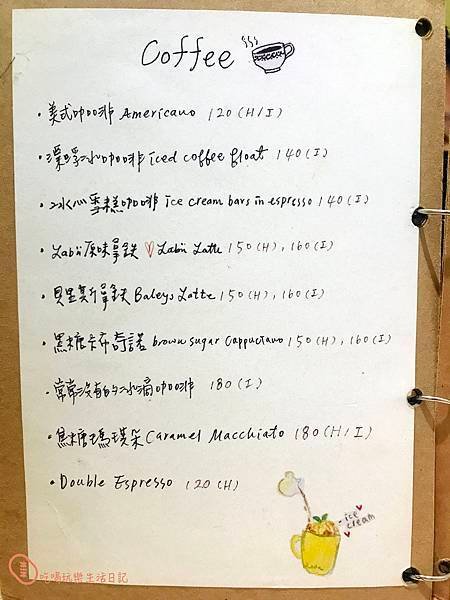 Coffee
· 美式咖啡 Americano 120 (H/I)
· 漂浮冰咖啡 iced coffee float 140 (I)
· 冰心雪糕咖啡 ice cream bars in espresso 140 (I)
· Labii原味拿鐵 ♡ Labii Latte 150 (H), 160 (I)
· 貝里斯拿鐵 Baleys Latte 150 (H), 160 (I)
· 黑糖卡布奇諾 brown sugar cappuccino 150 (H), 160 (I)
· 常常沒有的冰滴咖啡 180 (I)
· 焦糖瑪琪朵 Caramel Macchiato 180 (H/I)
· Double Espresso 120 (H)
ice
cream
吃喝玩樂生活日記